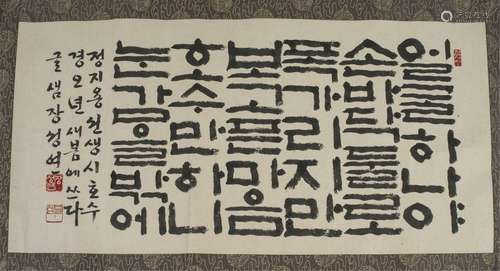 얼굴 하나야
손바닥 둘로
폭 가리지만
보고픈 마음
호수만 하니
눈 감을 밖에
정지용 선생 시 호수
경오년 새봄에 쓰다
글샘